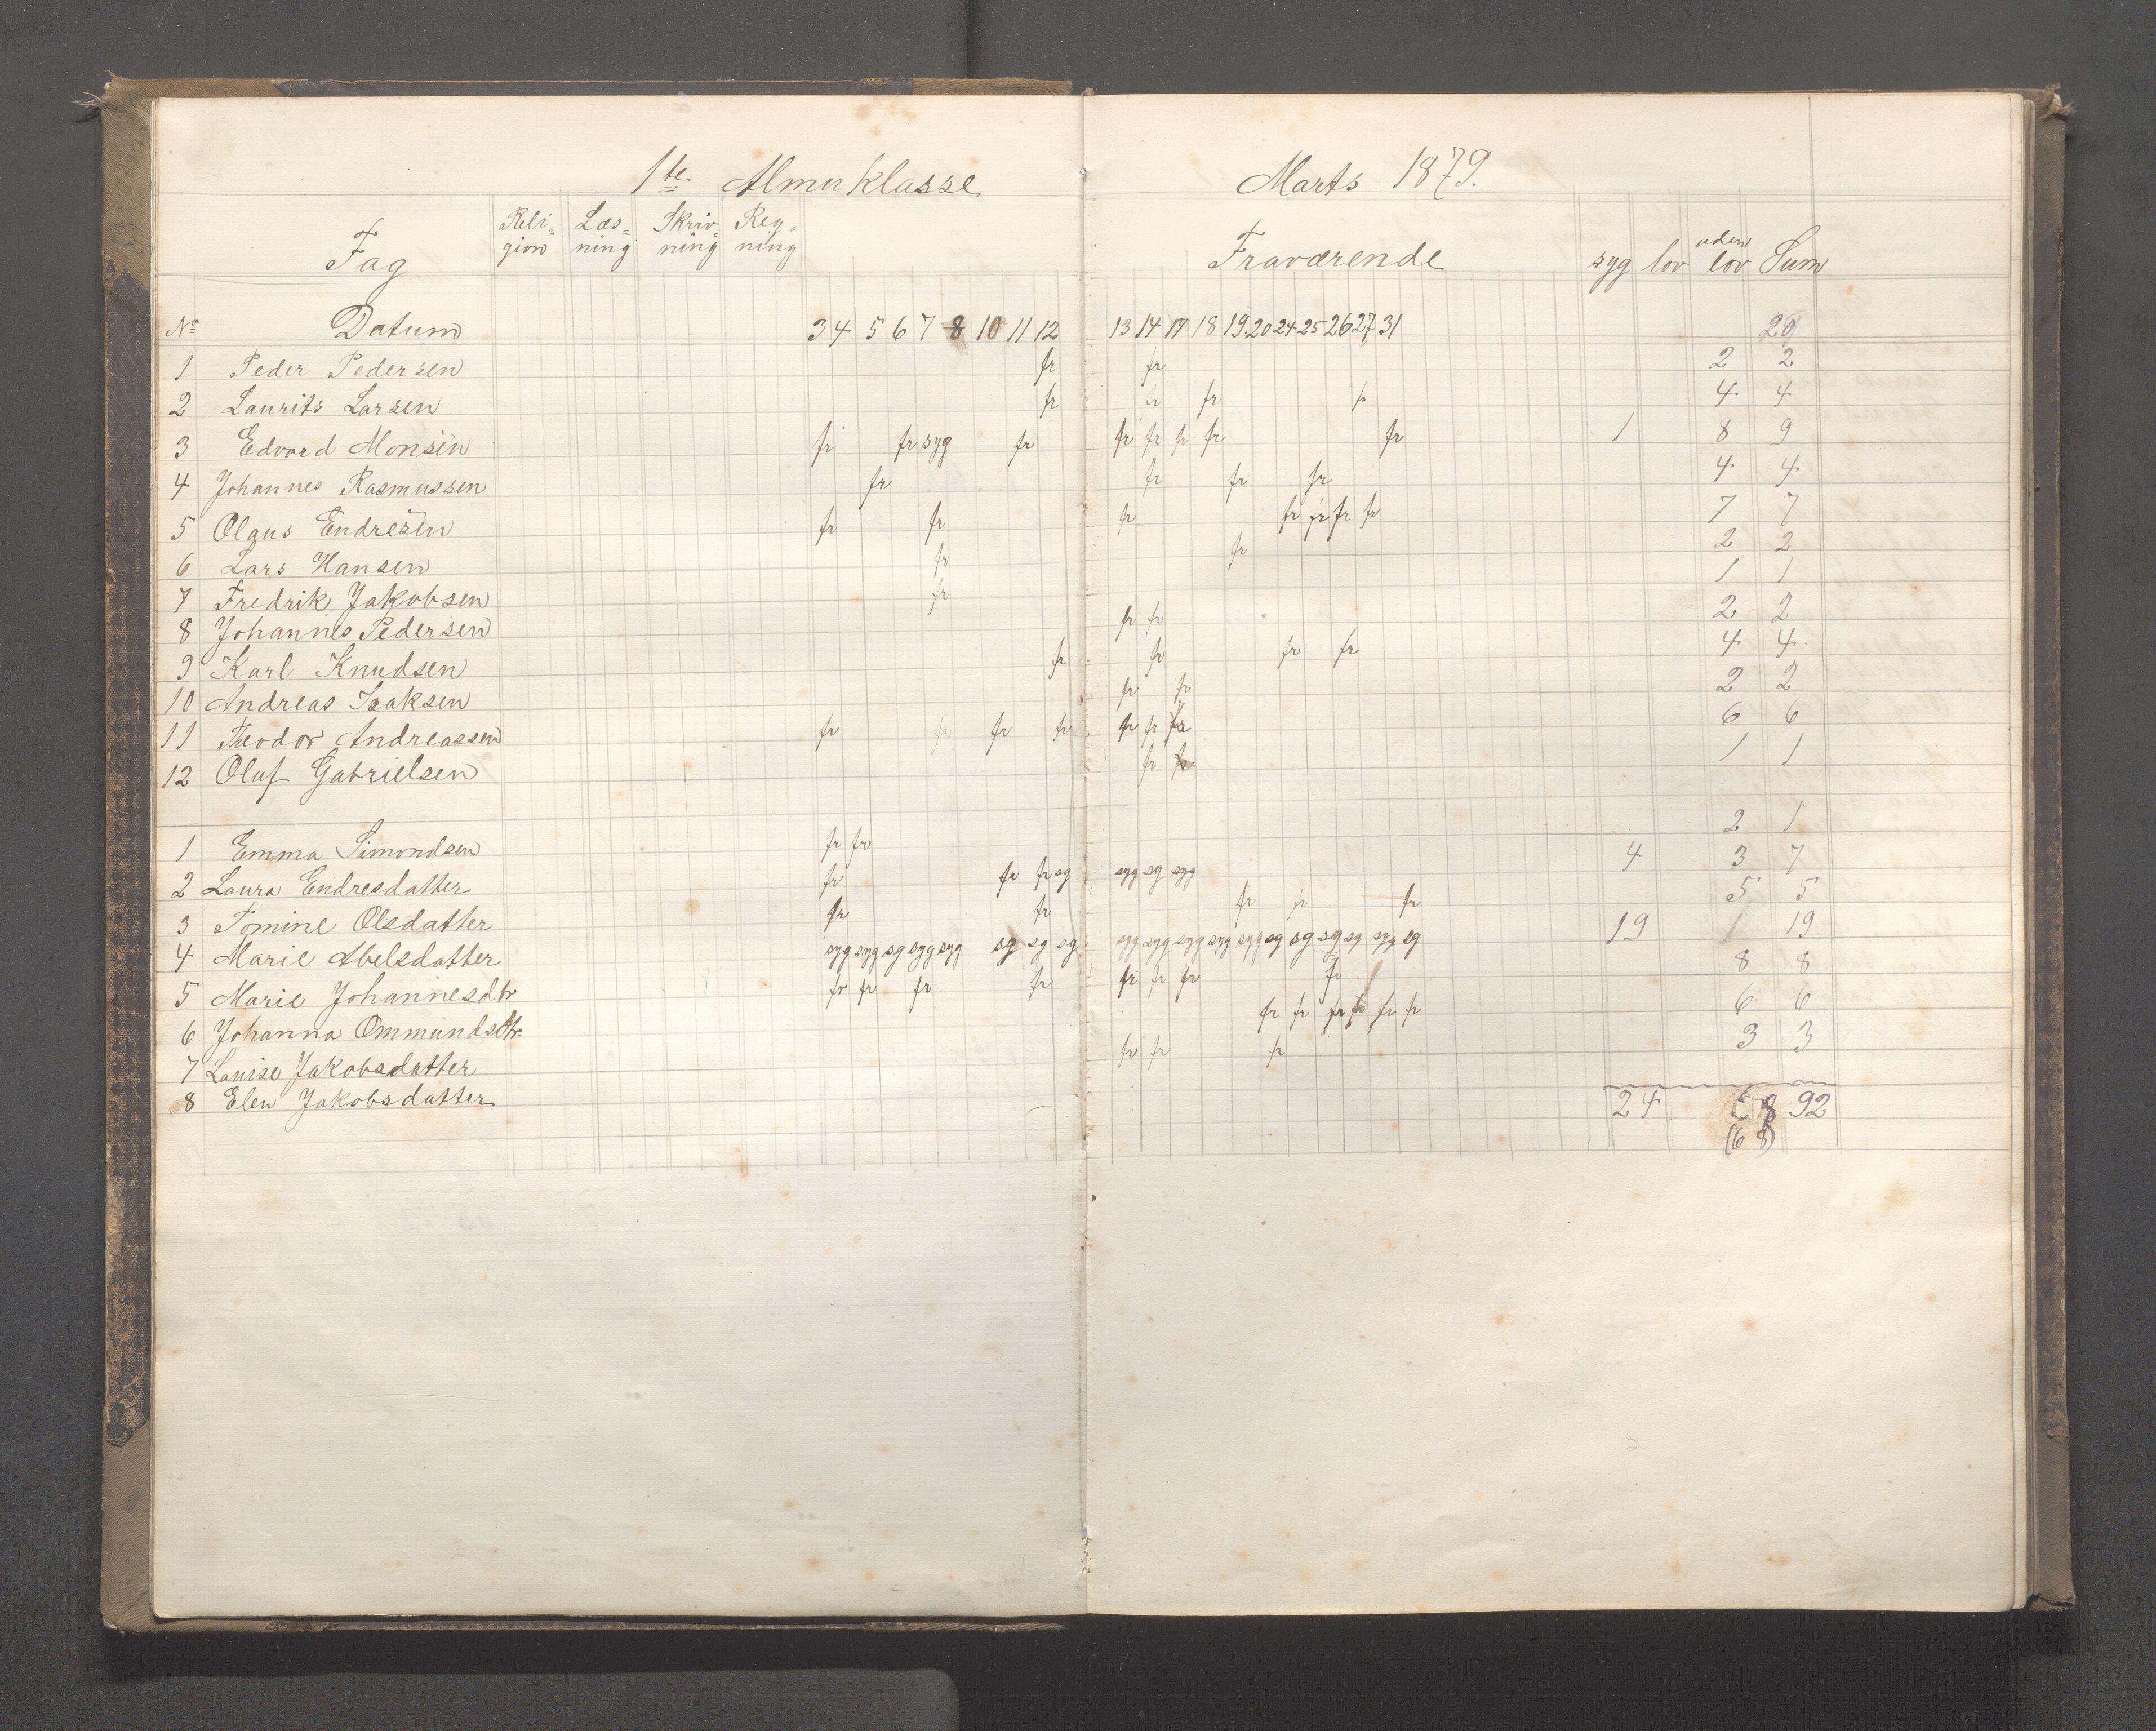 1te Almuklasse Marts 1879.
Fag Reli=gion Læs=ning Skriv=ning Reg=ning Fraværende syg lov uden lov Sum
No Datum 3 4 5 6 7 8 10 11 12 13 14 17 18 19. 20 24 25 26 27 31 20
1 Peder Pedersen fr fr 2 2
2 Laurits Larsen fr fr fr fr 4 4
3 Edvard Monsen fr fr syg fr fr fr fr fr fr 1 8 9
4 Johannes Rasmussen fr fr fr fr 4 4
5 Olaus Endresen fr fr fr fr fr fr fr 7 7
6 Lars Hansen fr fr 2 2
7 Fredrik Jakobsen fr 1 1
8 Johannes Pedersen fr fr 2 2
9 Karl Knudsen fr fr fr fr 4 4
10 Andreas Isaksen fr fr 2 2
11 Theodor Andreassen fr fr fr fr fr fr fr 6 6
12 Oluf Gabrielsen fr fr 1 1
1 Emma Simondsen fr fr 2 1
2 Laura Endresdatter fr fr fr sg syg sg syg 4 3 7
3 Tomine Olsdatter fr fr fr fr fr 5 5
4 Marie Abelsdatter syg syg sg syg syg sg sg sg syg syg syg syg syg sg sg sg sg syg sg 19 1 19
5 Marie Johannesdtr fr fr fr fr fr fr fr fr 8 8
6 Johanna Ommundsdtr. fr fr fr fr fr fr 6 6
7 Louise Jakobsdatter fr fr fr 3 3
8 Elen Jakobsdatter
24 8 92
(68)